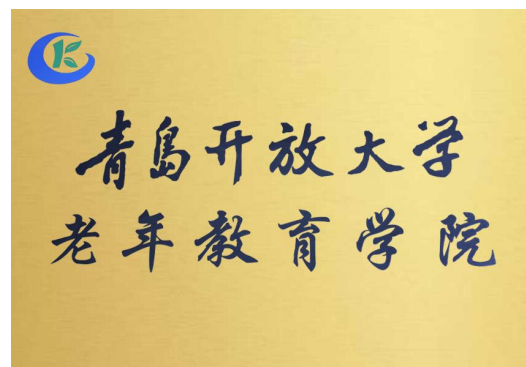 青島开放大学
老年教育学院